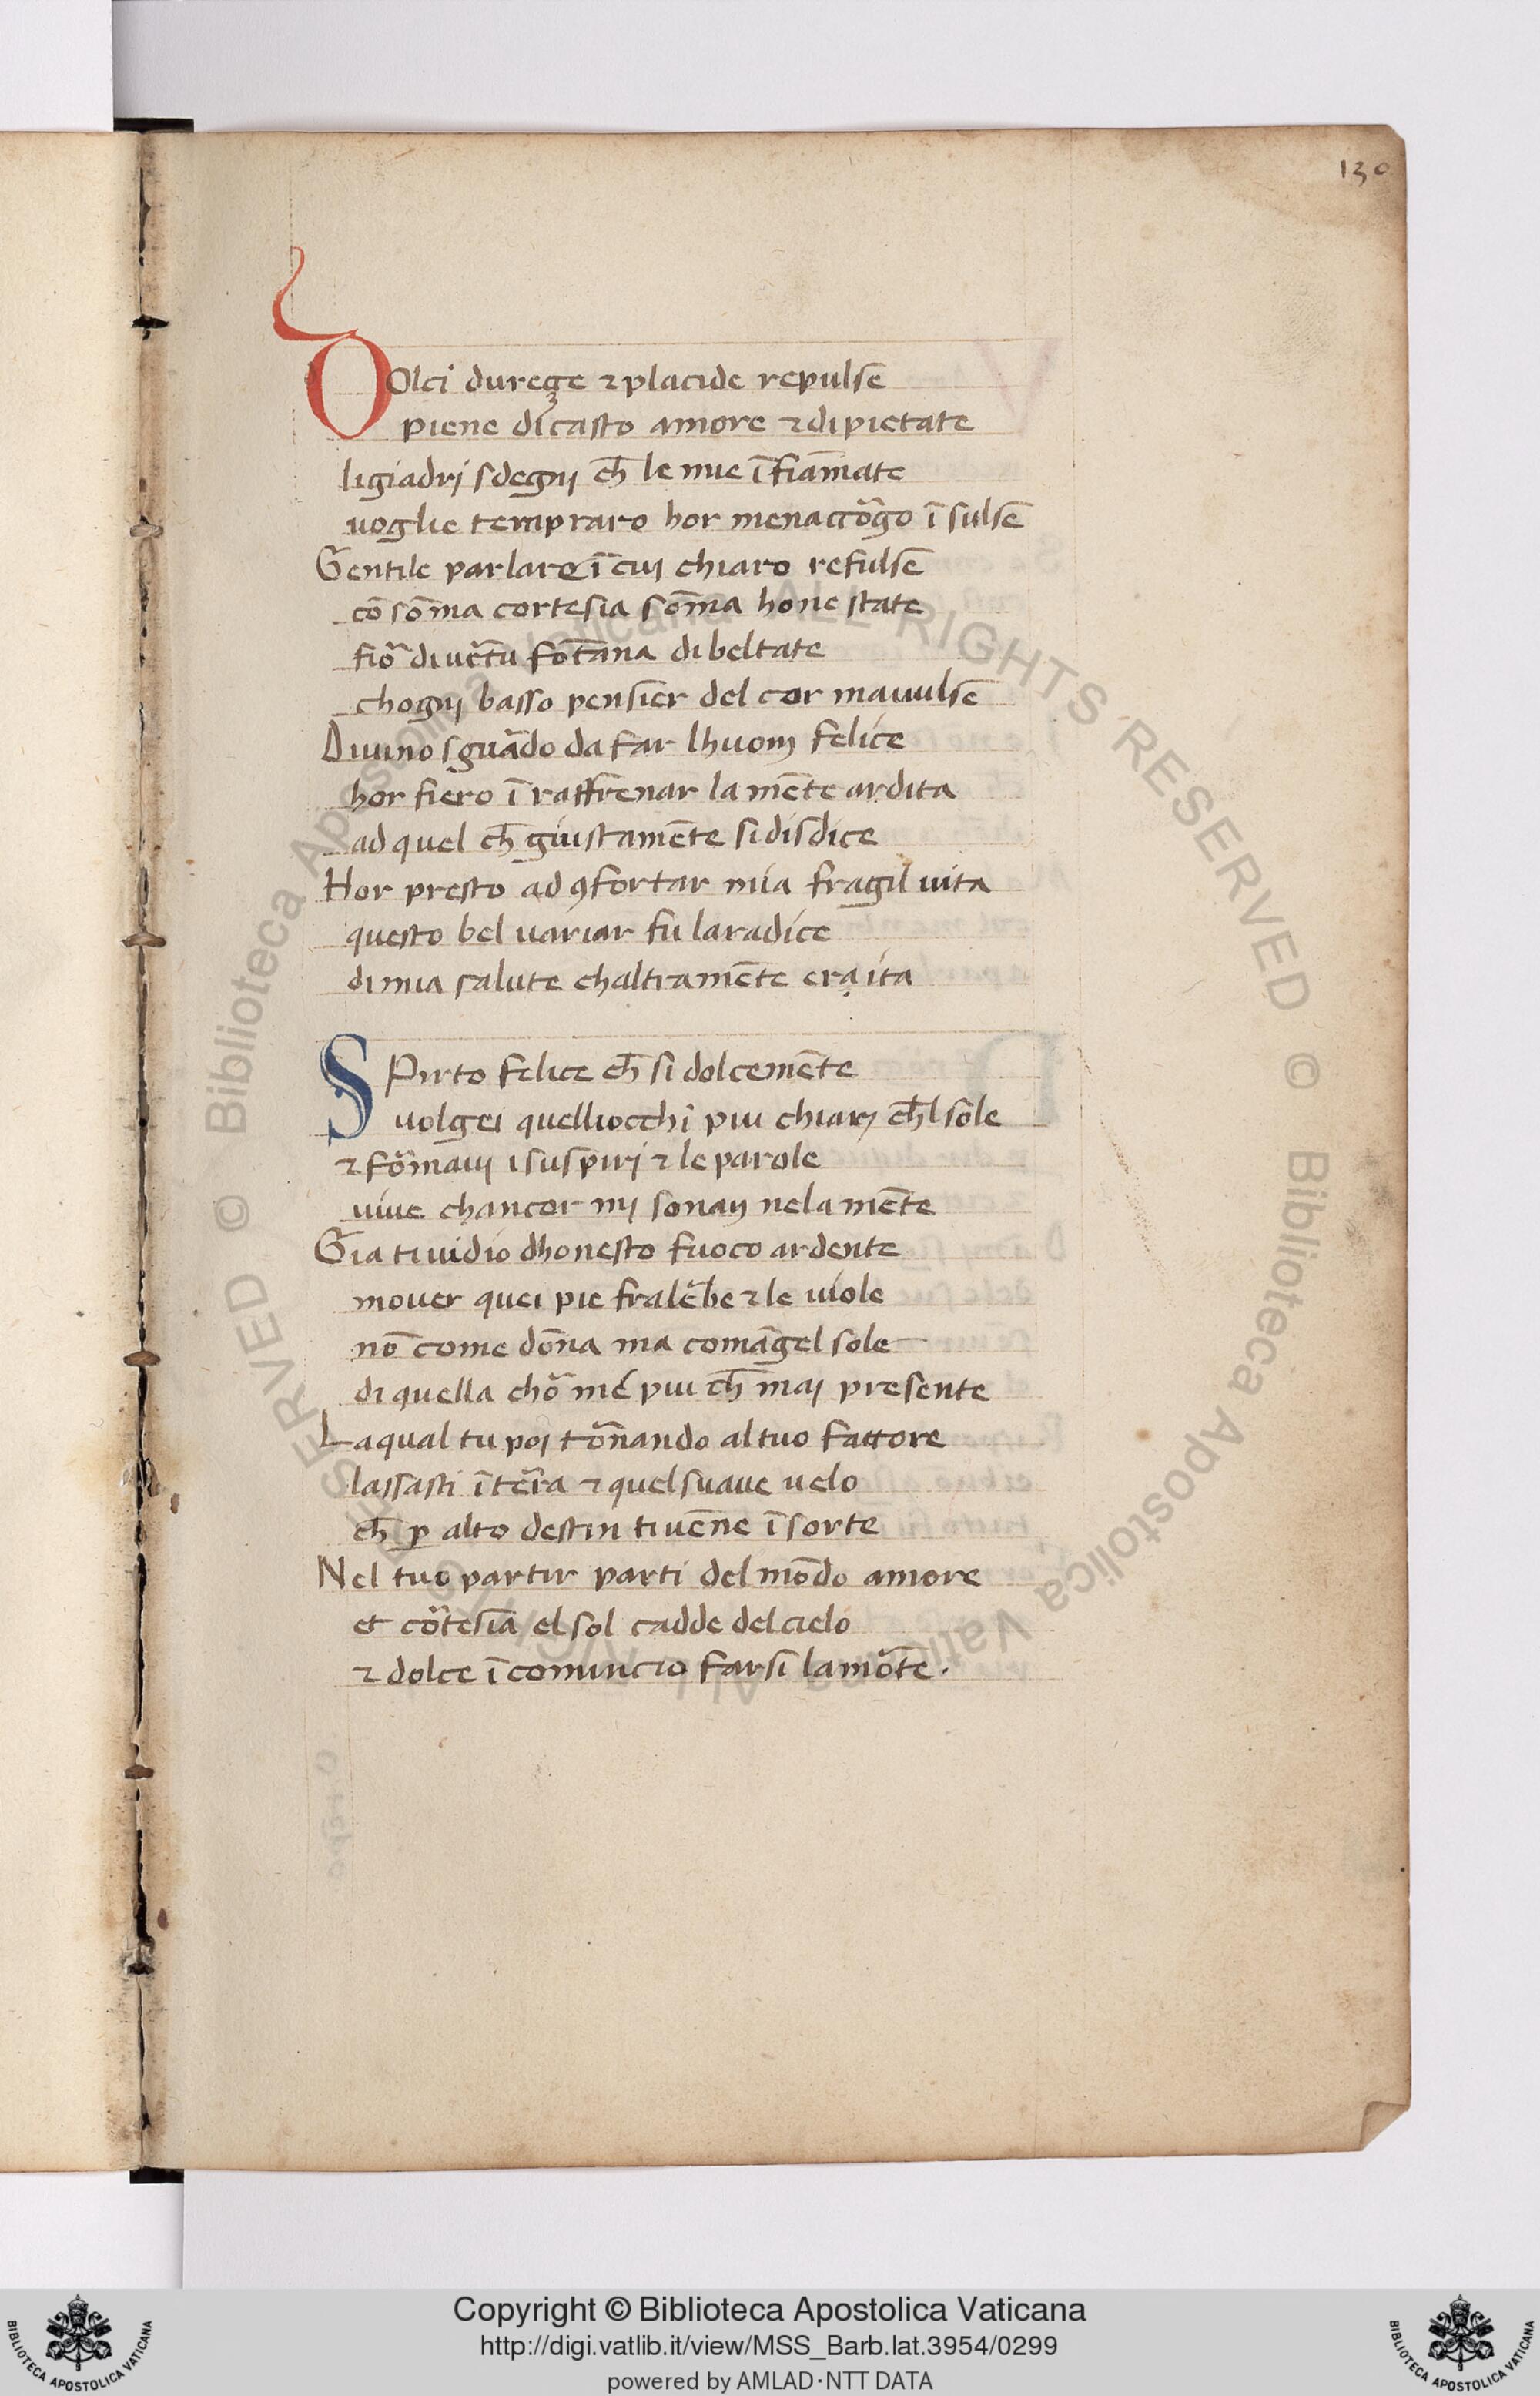 130
DOlci durezze ⁊ placide repulse
piene di casto amore ⁊ di pietate
ligiadrj sdegnj ch̄ le mie ī fiām̄ate
uoglie tempraro hor menaccōgo ī sulse
Gentile parlare ī cuj chiaro refulse
cō sōma cortesia sōma hone state
fiō di uc̄tu fōtana di beltate
chognj basso pensier del cor mauulse
Diuino sguādo da far lhuom felice
hor fiero ī raffrenar la mēte ardita
ad quel ch̄ giustamēte si disdice
Hor presto ad ꝯfortar mia fragil uita
questo bel uariar fu la radice
di mia salute chaltramēte era ita
SPirto felice ch̄ si dolcemēte
uolgei quelliocchi piu chiarj ch̄l sole
⁊ fōmauj i suspirj ⁊ le parole
uiue chancor mj sonan nela mēte
Gia ti uidio dhonesto fuoco ardente
mouer quei pie fralēbe ⁊ le uiole
nō come dōna ma comāgel sole
di quella chō mé piu ch̄ maj presente
Laqual tu poj tōnando al tuo fattore
lassasti ī tēra ⁊ quel suaue uelo
ch̄ ꝑ alto destin ti uēne ī sorte
Nel tuo partir parti del mōdo amore
et cōtesia el sol cadde del cielo
⁊ dolce ī comincio farsi la mōte.
© Biblioteca Apostolica Vaticana ALL RIGHTS RESERVED
© Biblioteca Apostolica Vaticana ALL RIGHTS RESERVED
Copyright © Biblioteca Apostolica Vaticana
http://digi.vatlib.it/view/MSS_Barb.lat.3954/0299
powered by AMLAD·NTT DATA
BIBLIOTECA APOSTOLICA VATICANA
BIBLIOTECA APOSTOLICA VATICANA